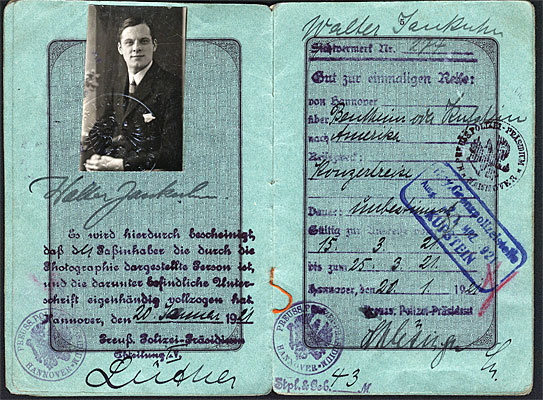 Walter Jankuhn
Es wird hierdurch bescheinigt,
daß der Paßinhaber die durch die
Photographie dargestellte Person ist,
und die darunter befindliche Unter-
schrift eigenhändig vollzogen hat.
Hannover, den 20 Januar 1921
Preuß. Polizei-Präsidium
Abteilung IV.
Lüther
HANNOVER
Walter Jankuhn
Sichtvermerk Nr.
Gut zur einmaligen Reise:
von Hannover
über Bentheim oder Kufstein
nach Amerika
Reisezweck: Konzertreise
Dauer: unbestimmt
Gültig zur Ausreise
15. 3. 21.
bis zum 25. 3. 21.
Hannover, den 20. 1. 192
Preuss. Polizei-Präsident
PREUSS. POLIZEI-PRÄSIDIUM
HANNOVER
KUFSTEIN
HANNOVER
Stpl. & Geb. 43 M